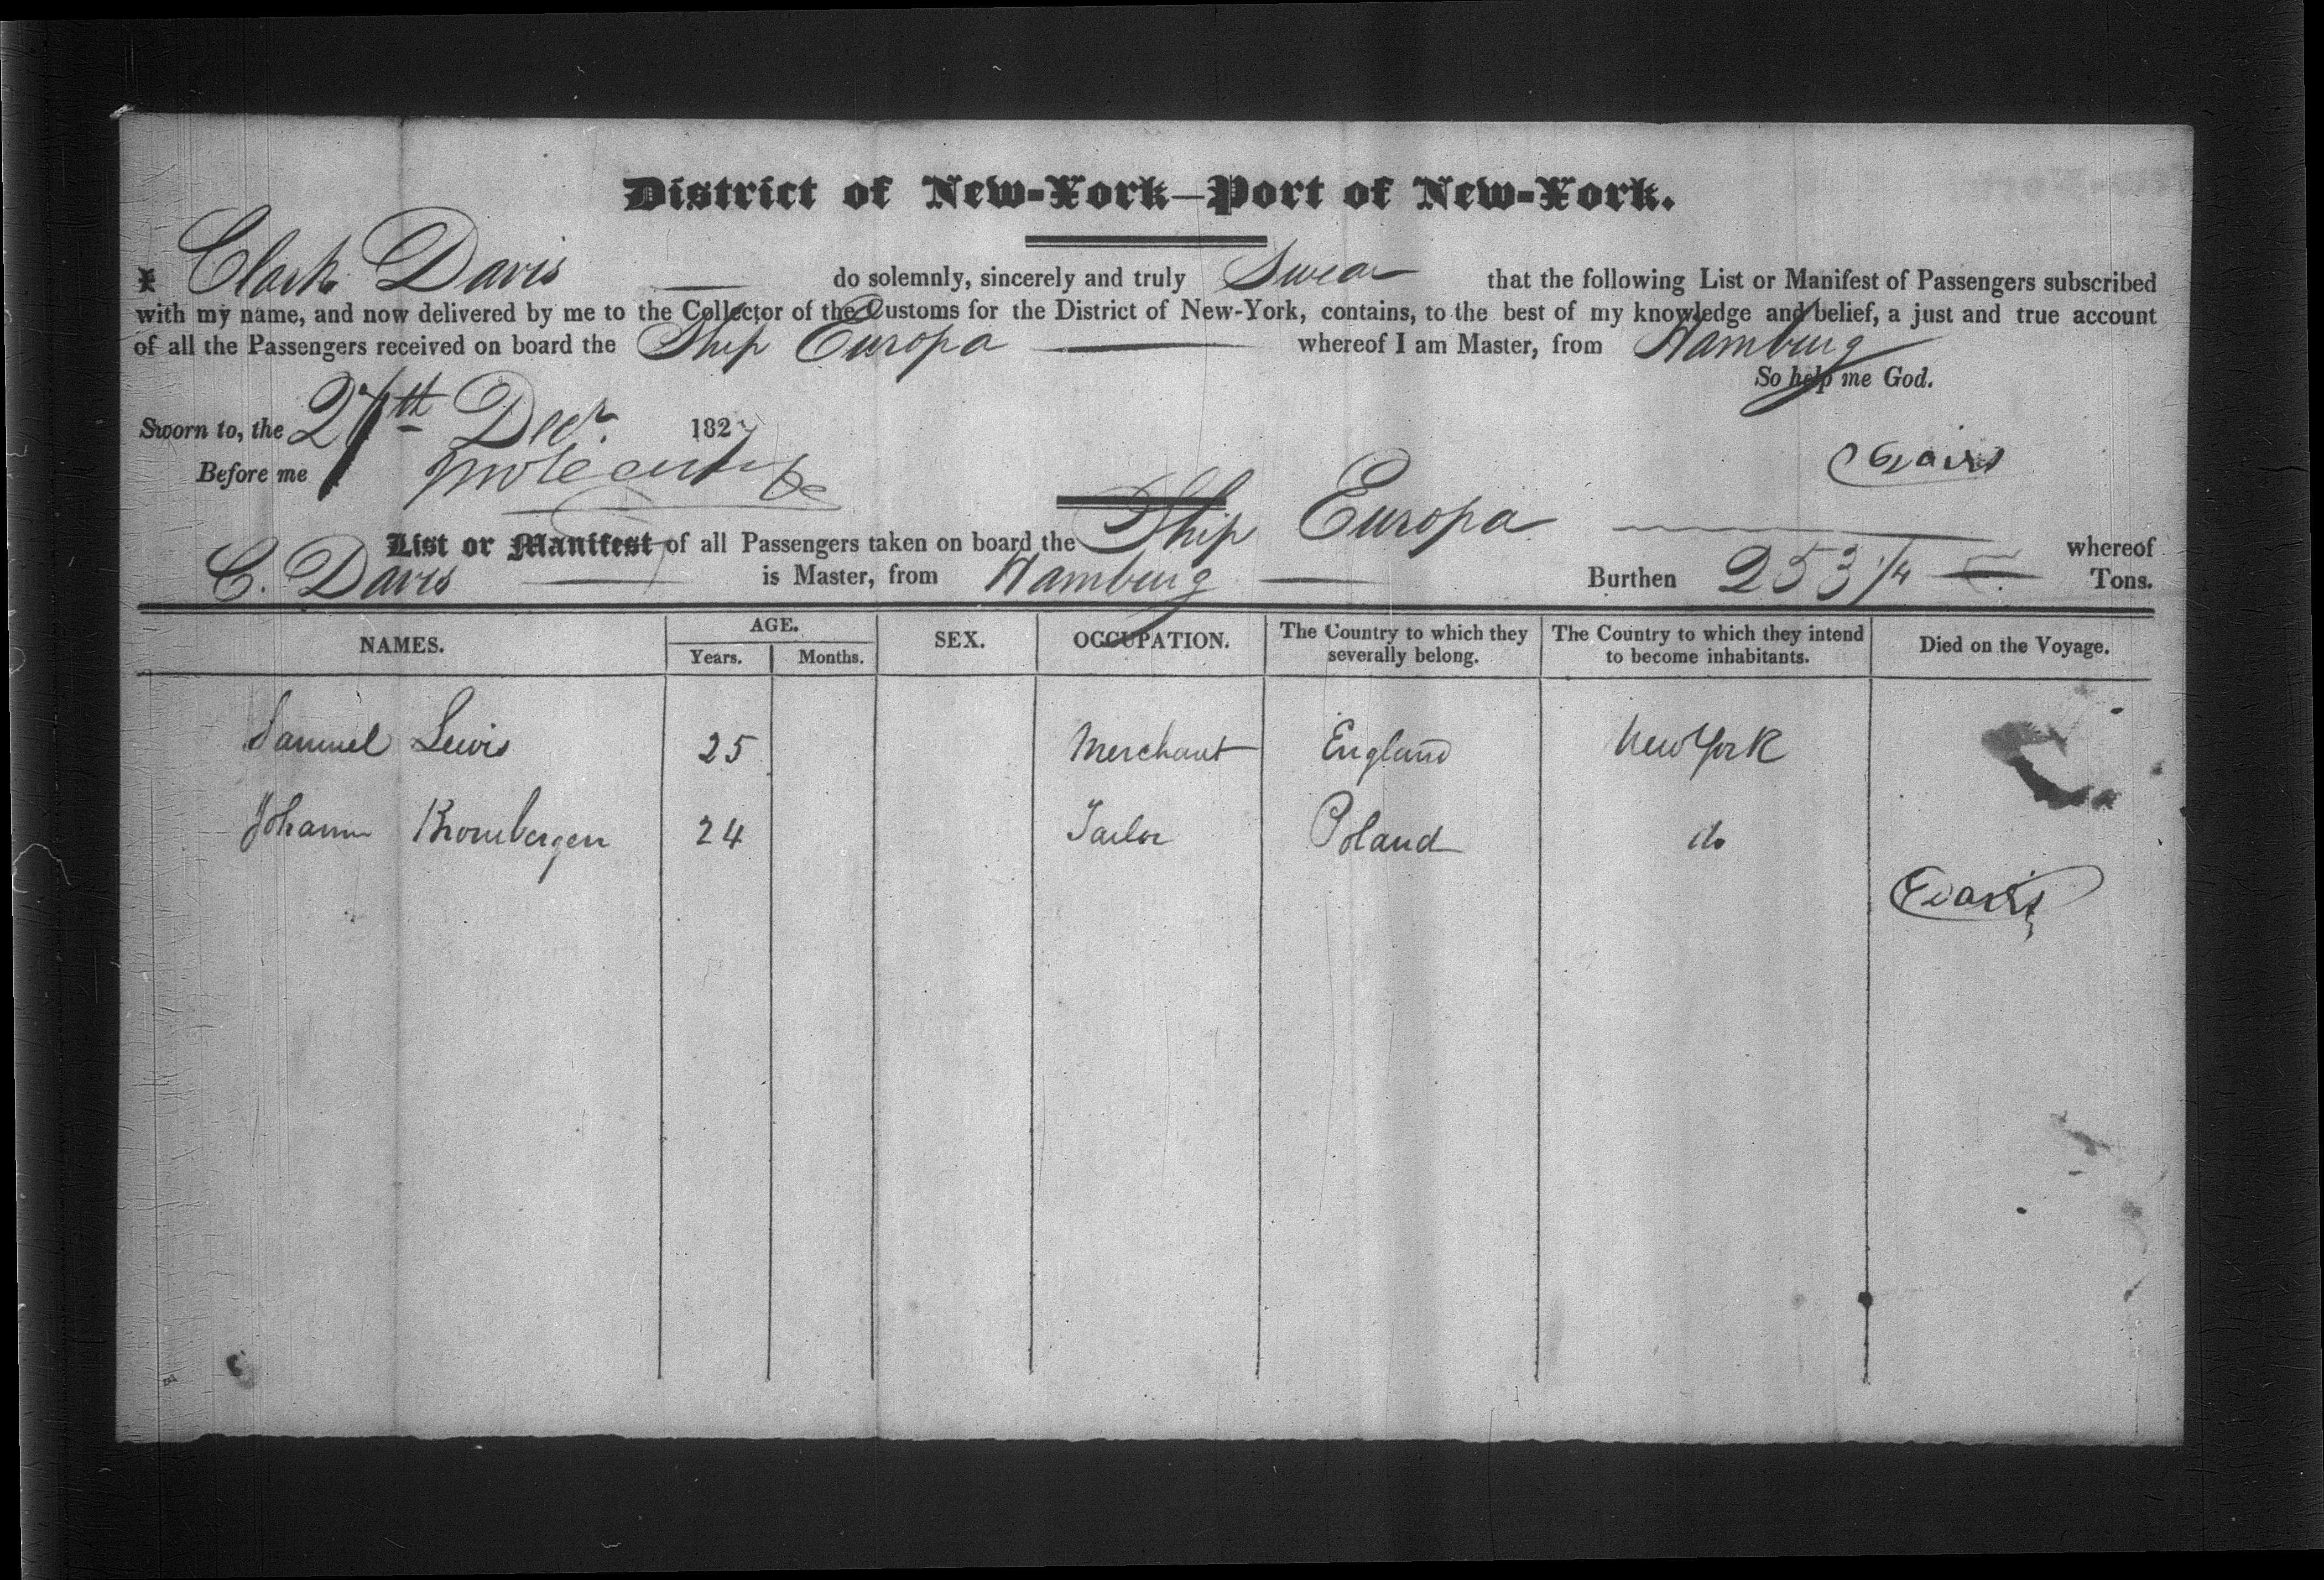 District of New-York—Port of New-York.
I Clark Davis do solemnly, sincerely and truly Swear that the following List or Manifest of Passengers subscribed
with my name, and now delivered by me to the Collector of the Customs for the District of New-York, contains, to the best of my knowledge and belief, a just and true account
of all the Passengers received on board the Ship Europa whereof I am Master, from Hamburg
So help me God.
Sworn to, the 27th Decr. 1827
Before me
C Davis
List or Manifest of all Passengers taken on board the Ship Europa whereof
C. Davis is Master, from Hamburg Burthen 253 1/4 Tons.
NAMES. AGE. Years. Months. SEX. OCCUPATION. The Country to which they severally belong. The Country to which they intend to become inhabitants. Died on the Voyage.
Samuel Lewis 25 Merchant England New York
Johann 24 Tailor Poland do
C Davis